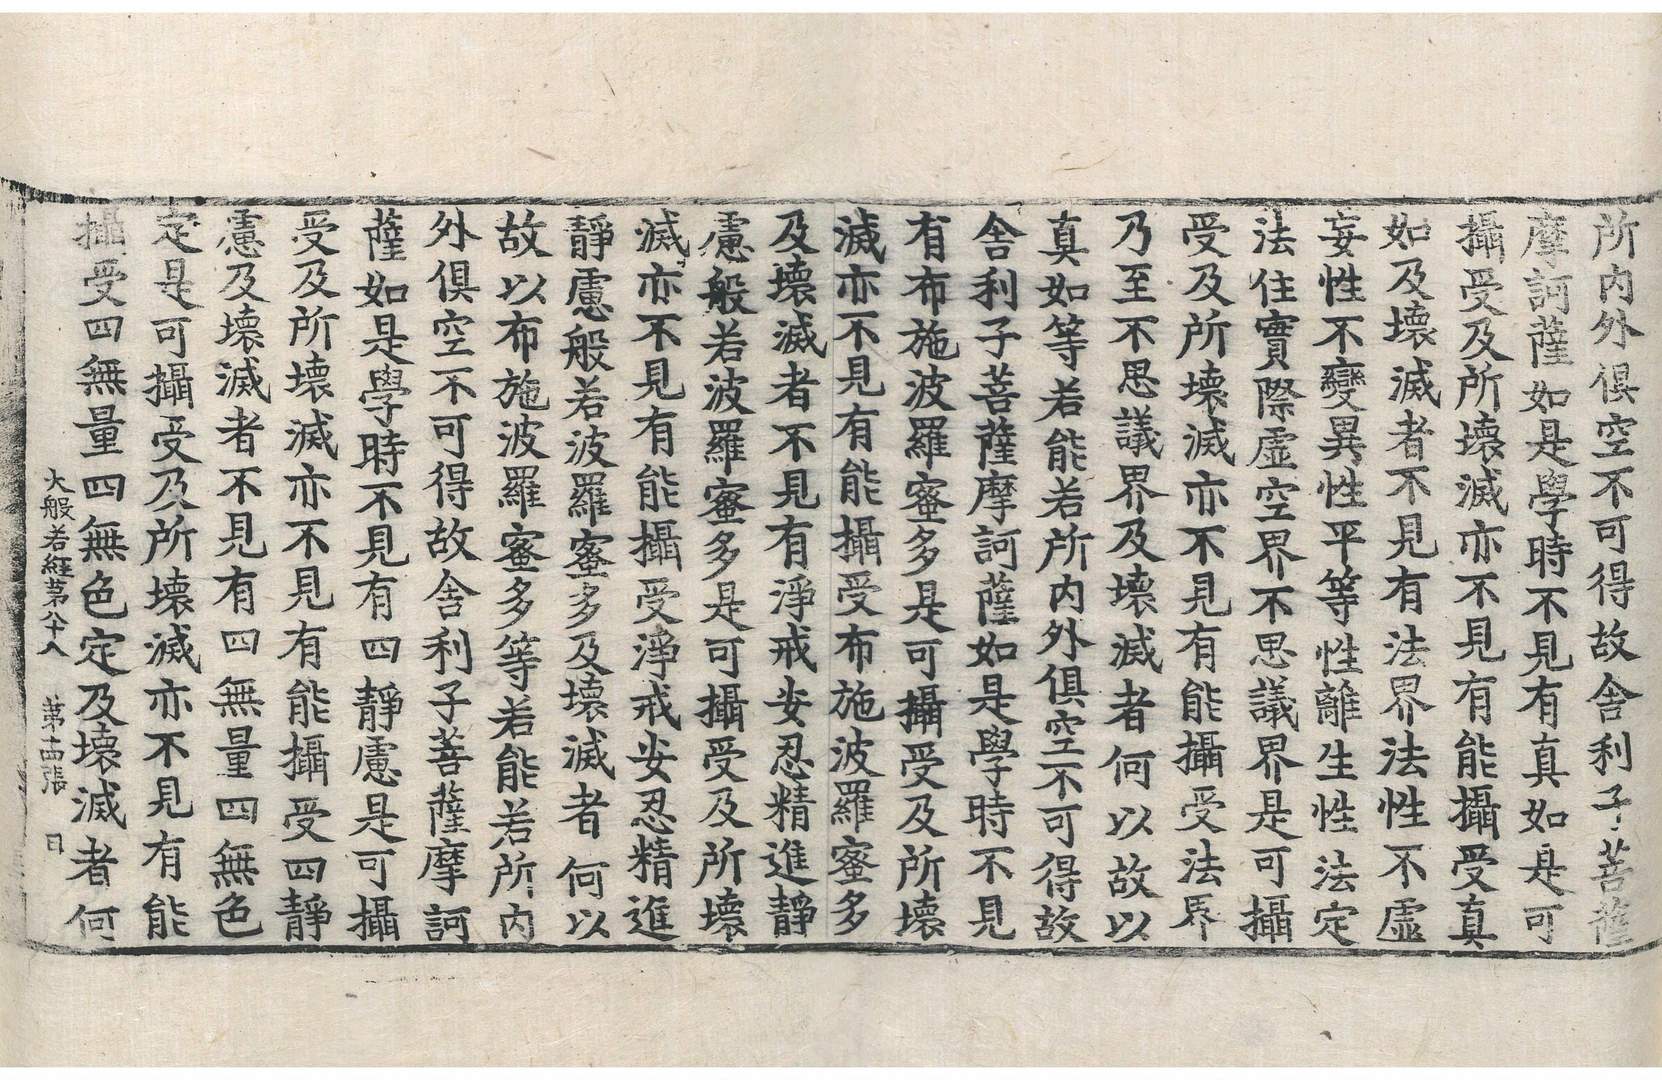 所内外俱空不可得故舍利子菩薩
摩訶薩如是學時不見有真如是可
攝受及所壞滅亦不見有能攝受真
如及壞滅者不見有法界法性不虛
妄性不變異性平等性離生性法定
法住實際虛空界不思議界是可攝
受及所壞滅亦不見有能攝受法界
乃至不思議界及壞滅者何以故以
真如等若能若所内外俱空不可得故
舍利子菩薩摩訶薩如是學時不見
有布施波羅蜜多是可攝受及所壞
滅亦不見有能攝受布施波羅蜜多
及壞滅者不見有淨戒安忍精進靜
慮般若波羅蜜多是可攝受及所壞
滅亦不見有能攝受淨戒安忍精進
靜慮般若波羅蜜多及壞滅者何以
故以布施波羅蜜多等若能若所内
外俱空不可得故舍利子菩薩摩訶
薩如是學時不見有四靜慮是可攝
受及所壞滅亦不見有能攝受四靜
慮及壞滅者不見有四無量四無色
定是可攝受及所壞滅亦不見有能
攝受四無量四無色定及壞滅者何
大般若經第八十八 第十四張 日